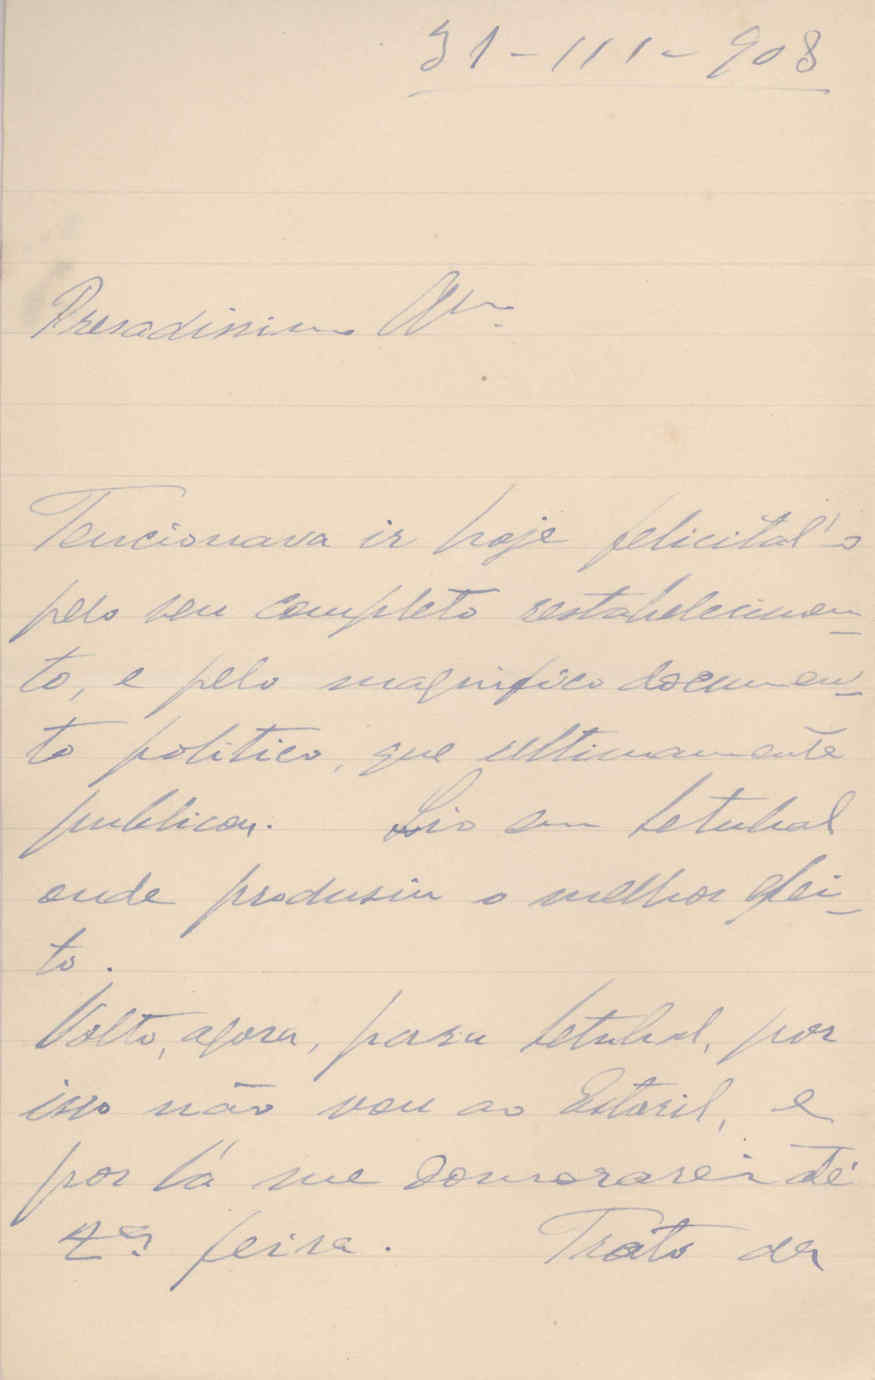 31-III-908
Presadissimo Am.º
Tencionava ir hoje felicital'o
pelo seu completo restabelecimen-
to, e pelo magnifico documen-
to politico, que ultimamente
publicou. Lio em Setubal
onde produsiu o melhor efei-
to.
Volto, agora, para Setubal, por
isso não vou ao Estoril, e
por lá me demorarei até
feira. Trato da